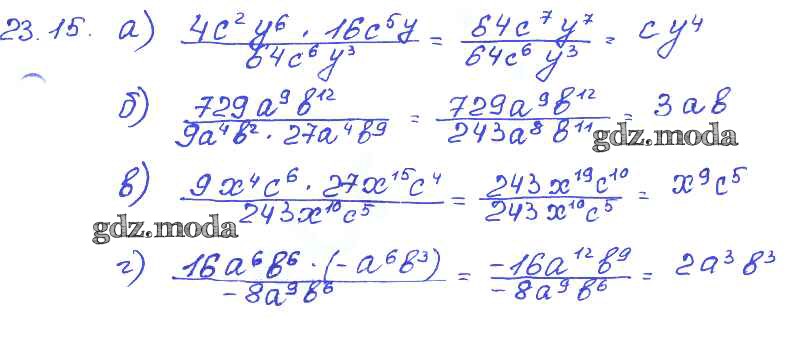 23.15. а) 4c² y⁶ · 16c⁵y / 64c⁶ y³ = 64c⁷ y⁷ / 64c⁶ y³ = c y⁴
б) 729a⁹b¹² / 9a⁴b² · 27a⁴b⁹ = 729a⁹b¹² / 243a⁸ b¹¹ = 3ab
gdz.moda
в) 9x⁴c⁶ · 27x¹⁵c⁴ / 243x¹⁰c⁵ = 243x¹⁹c¹⁰ / 243x¹⁰c⁵ = x⁹c⁵
gdz.moda
г) 16a⁶b⁶ · (-a⁶b³) / -8a⁹b⁶ = -16a¹²b⁹ / -8a⁹b⁶ = 2a³b³